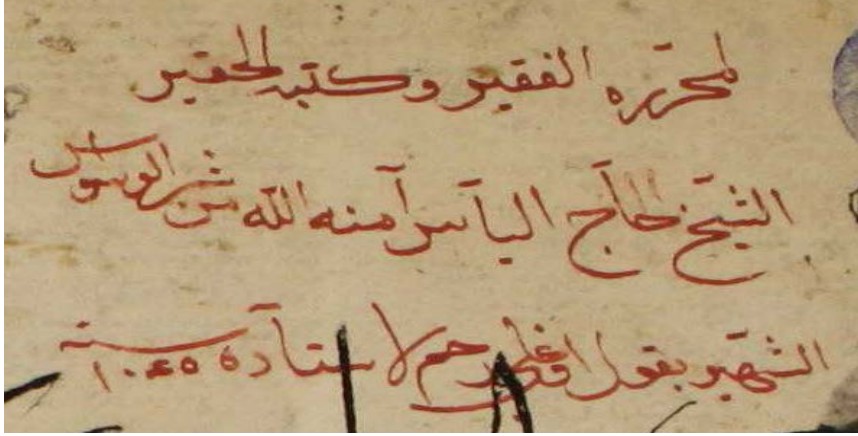 لمحرره الفقير وكتبه الحقير
الشيخ الحاج الياس آمنه الله من شر الوسواس
الشهير بقول اوغلى رحم لاستاده سنه ١٠٤٥